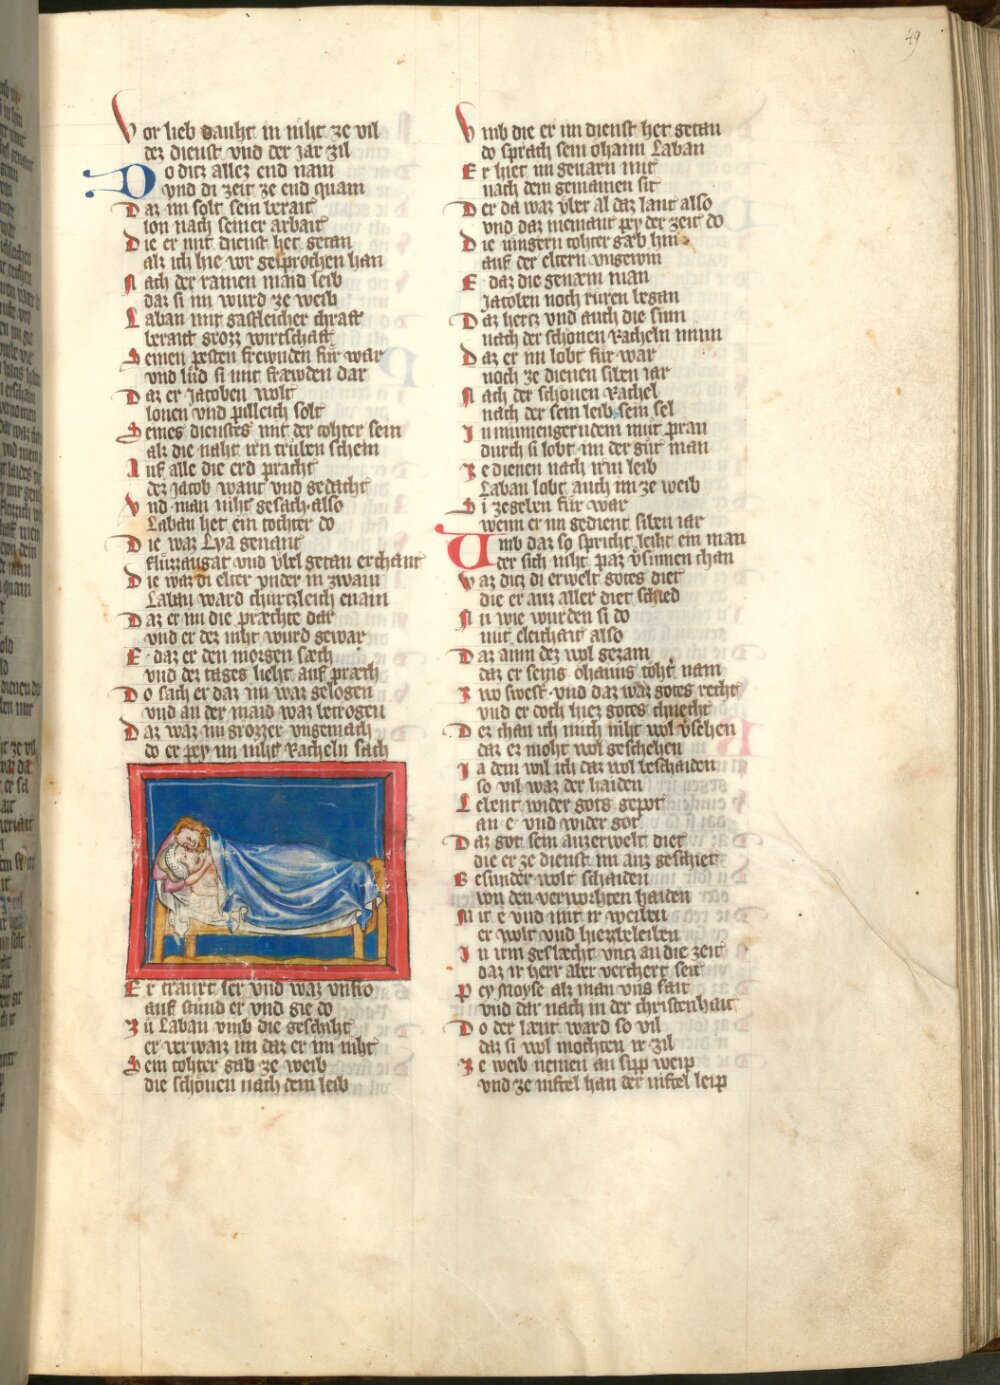 49
Vor lieb dauht in niht ze vil
dez dienst vnd der jar zil
Do ditz allez end nam
vnd di zeit ze end quam
Daz im solt sein berait
lon nach seiner arbait
Die er mit dienst het getan
als ich hie vor gesprochen han
Nach der rainen maid leib
daz si im wurd ze weib
Laban mit gastleicher chraft
berait grozz wirtschaft
Seinen pesten frewnden für war
vnd lůd si mit fræwden dar
Daz er Jacoben wolt
lonen vnd pilleich solt
Seines dienstes mit der tohter sein
als die naht irn trůben schein
Auf alle die erd praht
dez Jacob want vnd gedaht
Vnd man niht gesach also
Laban het ein tochter do
Die waz Lya genant
flüzzaugat vnd vbel getan erchant
Die waz di elter vnder in zwain
Laban ward chürtzleich enain
Daz er im die præchte dar
vnd er dez niht wurd gewar
E daz er den morgen sæch
vnd dez tages lieht auf præch
Do sach er daz im waz gelogen
vnd an der maid waz betrogen
Daz waz im grozzer vngemach
do er pey im niht Racheln sach
Er traurt ser vnd waz vnfro
auf stund er vnd gie do
Zů Laban vmb die geschiht
er verwaiz im daz er im niht
Sein tohter gab ze weib
die schönen nach dem leib
Vmb die er im dienst het getan
do sprach sein öhaim Laban
Er hiet im geuarn mit
nach dem gemainen sit
Der da waz vber al daz lant also
vnd daz niemant pey der zeit do
Die iüngern tohter gab hin
auf der eltern vngewin
E daz die genæm man
Jacoben noch rüren began
Daz hertz vnd auch die sinn
nach der schönen Racheln minn
Daz er im lobt für war
noch ze dienen siben iar
Nach der schönen Rachel
nach der sein leib sein sel
In minnengerndem můt pran
durch si lobt im der gůt man
Ze dienen nach irm leib
Laban lobt auch im ze weib
Si zegeben für war
wenn er im gedient siben iar
Vmb daz so spricht leiht ein man
der sich niht paz v̊sinnen chan
Waz ditz di erwelt gotes diet
die er auz aller diet schied
Nu wie wurden si do
mit eleichait also
Daz ainn dez wol gezam
daz er seins öhaims toht̊ nam
Zwo swest̊ vnd daz waz gotes recht
vnd er doch hiez gotes chnecht
Der chan ich mich niht wol v̊sehen
daz ez moht wol geschehen
Ja dem wil ich daz wol beschaiden
so vil waz der haiden
Lebent wider gots gepot
an e vnd wider got
Daz got sein auzerwelt diet
die er ze dienst im auz geschiet
Besunder wolt schaiden
von den verworhten haiden
Mit e vnd mit ir weiben
er wolt vnd hiez beleiben
In irm geslæcht vntz an die zeit
daz ir herr aber verchert seit
Pey Moyse als man vns sait
vnd dar nach in der christenhait
Do der læut ward so vil
daz si wol mochten ir zil
Ze weib nemen an sipp weip
vnd ze niftel han der niftel leip